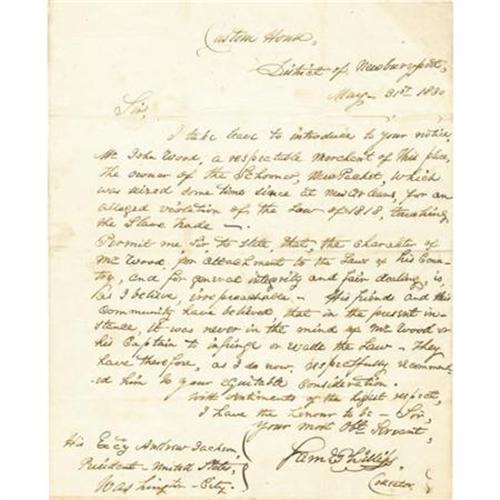 Custom House,
District of Newburyport,
May 31st 1830
Sir,
I take leave to introduce to your notice,
Mr John Wood, a respectable merchant of this place,
the owner of the Schooner, New Packet, which
was seized some time since at New Orleans, for an
alleged violation of the Law of 1818, touching
the Slave trade —.
Permit me Sir to state, that, the character of
Mr Wood, for attachment to the Laws of his Coun-
try, and for general integrity and fair dealing, is,
as I believe, irreproachable — His friends and this
Community have believed, that in the present in-
stance, it was never in the mind of Mr Wood or
his Captain to infringe or evade the Law — They
have therefore, as I do now, respectfully recommend-
ed him to your equitable consideration.
With Sentiments of the highest respect,
I have the honour to be — Sir,
Your most Obt. Servant,
Phillips
Collector
His Excy Andrew Jackson,
President – United States,
Washington – City.